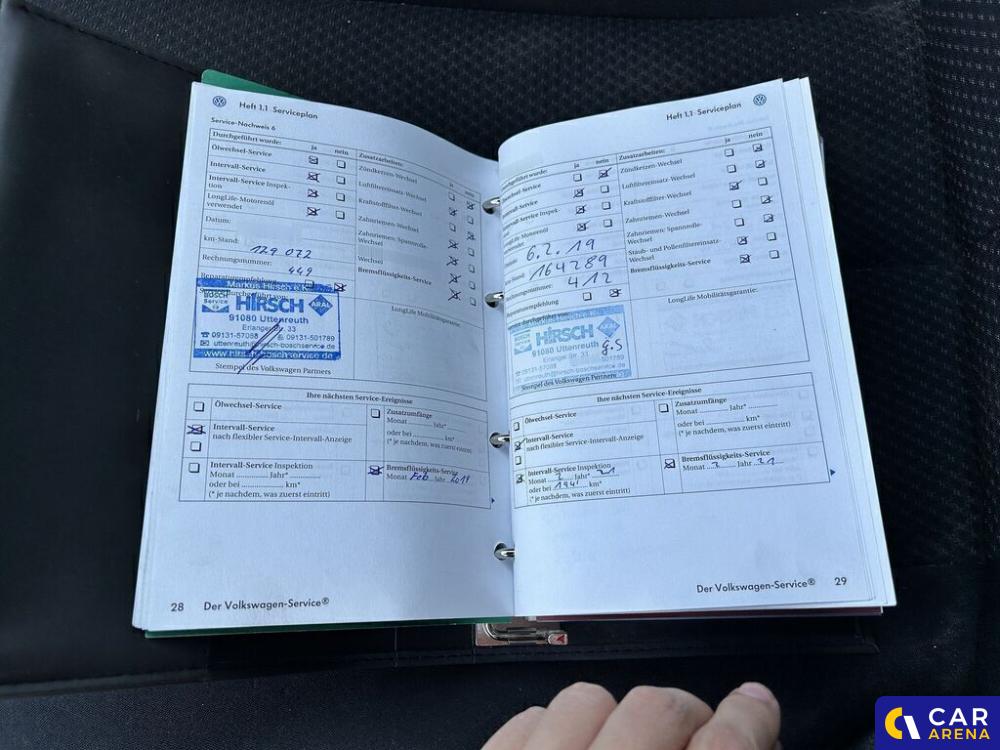 Heft 1.1 Serviceplan
Service-Nachweis 6
Durchgeführt wurde: ja nein
Ölwechsel-Service
Intervall-Service
Intervall-Service Inspek-
tion
LongLife-Motorenöl
verwendet
Datum:
km-Stand: 129 072
Rechnungsnummer: 449
Zusatzarbeiten: ja nein
Zündkerzen-Wechsel
Luftfiltereinsatz-Wechsel
Kraftstofffilter-Wechsel
Zahnriemen-Wechsel
Zahnriemen: Spannrolle-
Wechsel
Wechsel
Bremsflüssigkeits-Service
Markus Hirsch e.K.
BOSCH
Service
HIRSCH
ARAL
91080 Uttenreuth
Erlanger Str. 33
09131-57088 09131-501789
uttenreuth@hirsch-boschservice.de
www.hirsch-boschservice.de
Stempel des Volkswagen Partners
LongLife Mobilitätsgarantie:
Ihre nächsten Service-Ereignisse
Ölwechsel-Service
Intervall-Service
nach flexibler Service-Intervall-Anzeige
Intervall-Service Inspektion
Monat Jahr*
oder bei km*
(* je nachdem, was zuerst eintritt)
Zusatzumfänge
Monat Jahr*
oder bei km*
(* je nachdem, was zuerst eintritt)
Bremsflüssigkeits-Service
Monat Feb Jahr 2019
28 Der Volkswagen-Service®
Heft 1.1 Serviceplan
Durchgeführt wurde: ja nein
Ölwechsel-Service
Intervall-Service
Intervall-Service Inspek-
tion
LongLife-Motorenöl
6.2.19
164289
Rechnungsnummer: 412
Reparaturempfehlung
Zusatzarbeiten: ja nein
Zündkerzen-Wechsel
Luftfiltereinsatz-Wechsel
Kraftstofffilter-Wechsel
Zahnriemen-Wechsel
Zahnriemen: Spannrolle-
Wechsel
Staub- und Pollenfiltereinsatz-
Wechsel
Bremsflüssigkeits-Service
HIRSCH
91080 Uttenreuth
Erlanger Str. 33
09131-57088 501789
uttenreuth@hirsch-boschservice.de
Stempel des Volkswagen Partners
LongLife Mobilitätsgarantie:
Ihre nächsten Service-Ereignisse
Ölwechsel-Service
Intervall-Service
nach flexibler Service-Intervall-Anzeige
Intervall-Service Inspektion
Monat 2 Jahr* 21
oder bei 194' km*
(* je nachdem, was zuerst eintritt)
Zusatzumfänge
Monat Jahr*
oder bei km*
(* je nachdem, was zuerst eintritt)
Bremsflüssigkeits-Service
Monat 2 Jahr 21
Der Volkswagen-Service® 29
CAR
ARENA